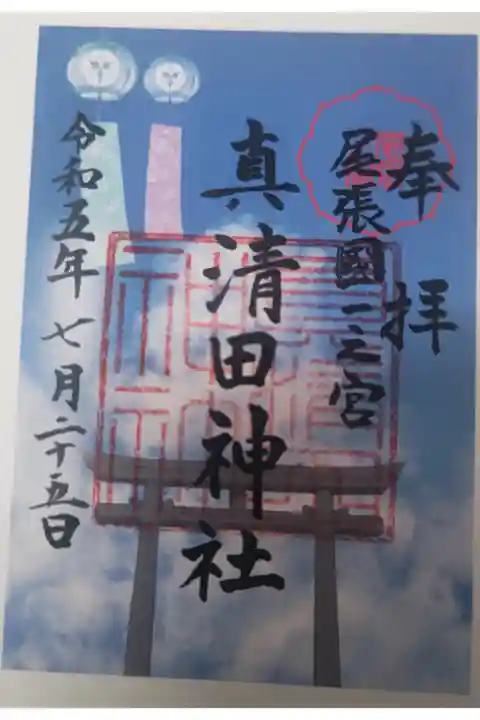 奉拝
尾張國一之宮
真清田神社
令和五年七月二十五日